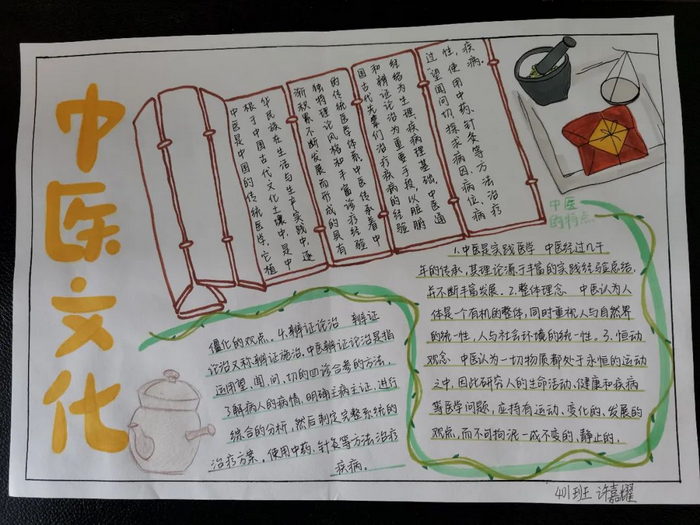 中医文化
中医是中国的传统医学。它植
根于中国古代文化土壤中,是中
华民族在生活与生产实践中,逐
渐积累不断发展而形成的具有
独特理论风格和丰富诊疗经验
的传统医学体系,中医传承着中
国古代先辈们治疗疾病的经验
和辨证论治为重要手段以脏腑
经络为生理、疾病病理基础,中医通
过望闻问切,探求病因,病位,病
性,使用中药,针灸等方法治疗
疾病。
中医
的特点
1.中医是实践医学 中医经过几千
年的传承,其理论源于丰富的实践经验总结,
并不断丰富发展。2.整体理念 中医认为人
体是一个有机的整体,同时重视人与自然界
的统一性,人与社会环境的统一性。3.恒动
观念 中医认为一切物质都处于永恒的运动
之中,因此研究人的生命活动,健康和疾病
等医学问题,应持有运动、变化的、发展的
观点,而不可拘泥一成不变的、静止的、
僵化的观点。4.辨证论治 辨证
论治又称辩证施治,中医辨证论治是指
运用望、闻、问、切的四诊合参的方法,
了解病人的病情,明确主病主证,进行
综合的分析,然后制定完整系统的
治疗方案。使用中药、针灸等方法治疗
疾病。
401班 许嘉耀